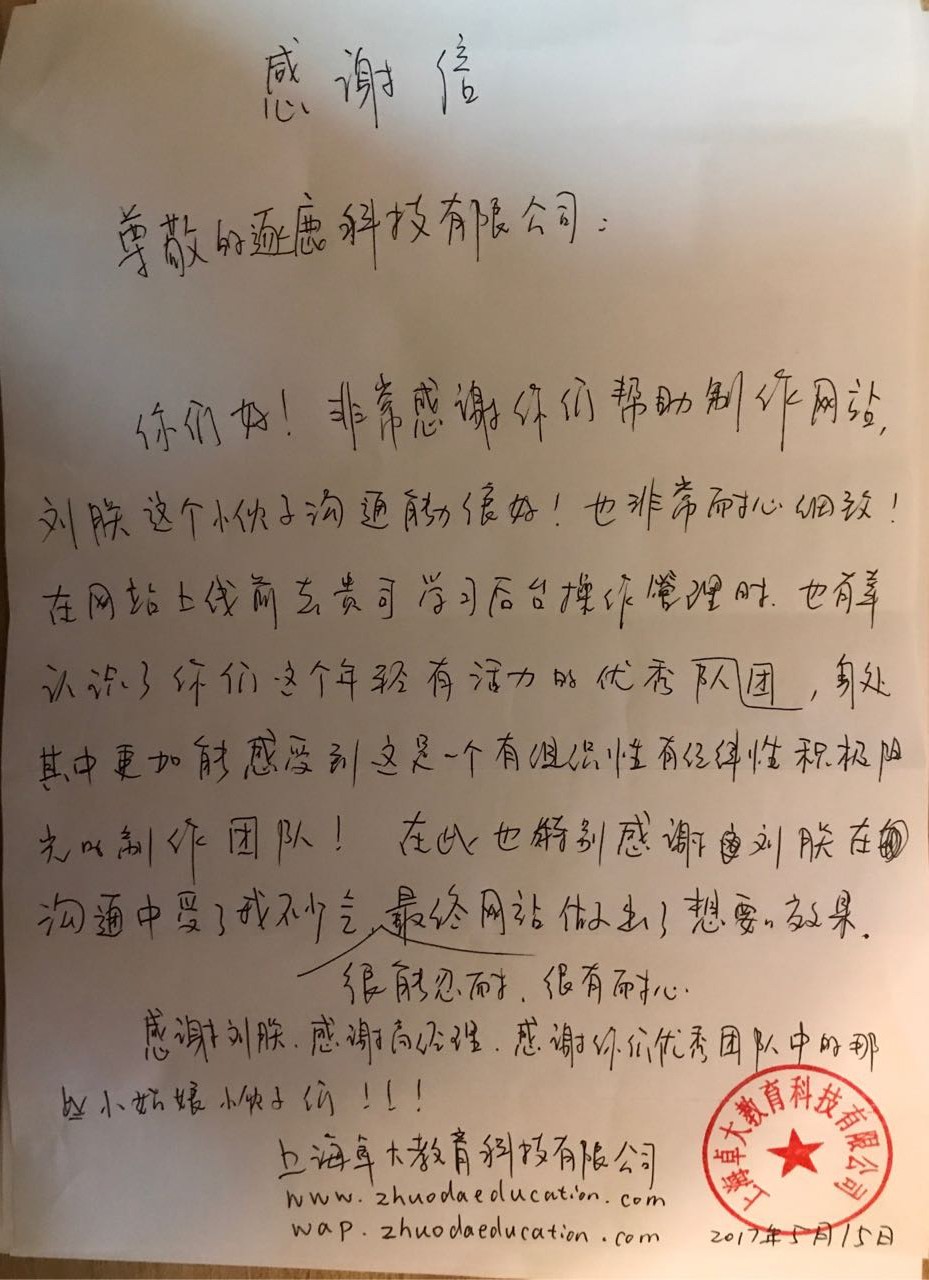 感谢信
尊敬的逐鹿科技有限公司：
你们好！非常感谢你们帮助制作网站，
刘朕这个小伙子沟通能力很好！也非常耐心细致！
在网站上线前去贵司学习后台操作管理时，也有幸
认识了你们这个年轻有活力的优秀队团，身处
其中更加能感受到这是一个有组织性有纪律性积极阳
光的制作团队！在此也特别感谢刘朕在
沟通中受了我不少气，最终网站做出了想要的效果。
很能忍耐，很有耐心.
感谢刘朕.感谢高经理.感谢你们优秀团队中的那
些小姑娘小伙子们！！！
上海卓大教育科技有限公司
www.zhuodaeducation.com
wap.zhuodaeducation.com
上海卓大教育科技有限公司
2017年5月15日